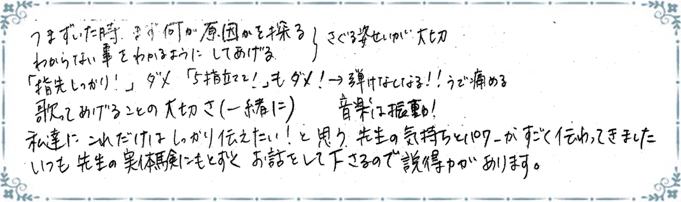 つまずいた時 まず何が原因かを探る
わからない事をわかるようにしてあげる } さぐる姿せいが大切
「指先しっかり!」ダメ 「5指立てて!」もダメ!→弾けなくなる!!うで痛める
歌ってあげることの大切さ(一緒に) 音楽は振動!
私達にこれだけはしっかり伝えたい!と思う先生の気持ちとパワーがすごく伝わってきました
いつも先生の実体験にもとずくお話をして下さるので説得力があります。